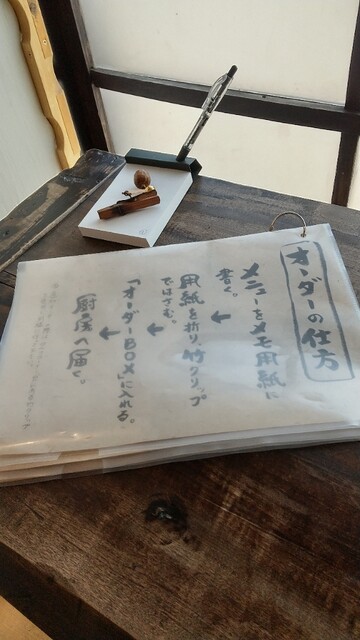 オーダーの仕方
メニューをメモ用紙に
書く。
←
用紙を折り、竹クリップ
ではさむ。
←
「オーダーBOX」に入れる。
←
厨房へ届く。